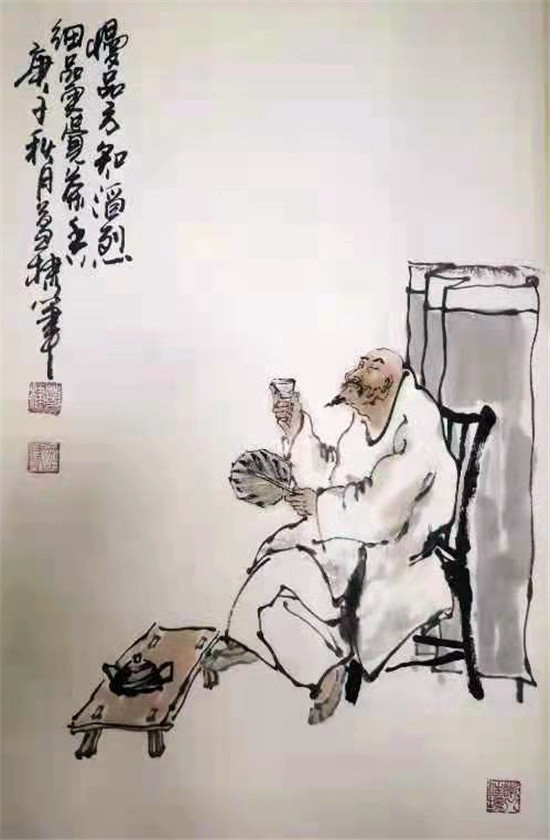 慢品方知烈
细品更觉茶香
庚子秋月棣笔